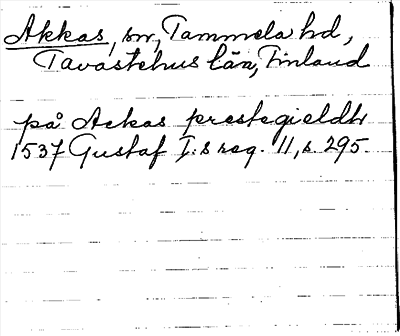 Akkas, sn, Tammela hd,
Tavastehus län, Finland
på Ackas prestegieldh
1537 Gustaf I:s reg. 11, s. 295.